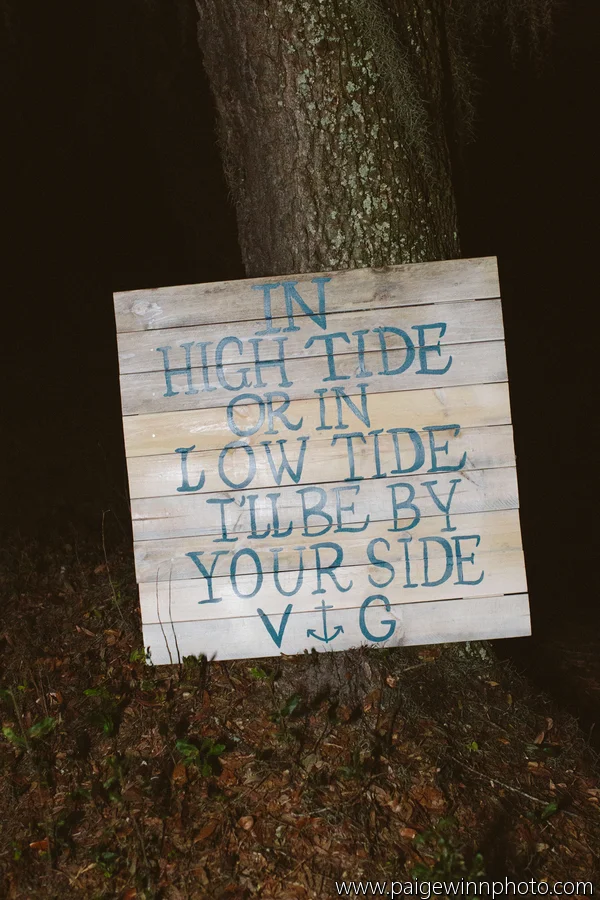 IN
HIGH TIDE
OR IN
LOW TIDE
I'LL BE BY
YOUR SIDE
V G
www.paigewinnphoto.com